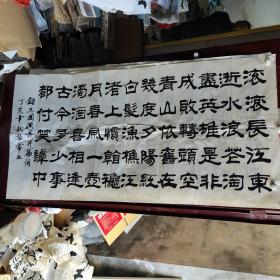 滾滾長江東
逝水浪花淘
盡英雄是非
成敗轉頭空
青山依舊在
幾度夕陽紅
白髮漁樵江
渚上慣看秋
月春風一壺
濁酒喜相逢
古今多少事
都付笑譚中
錄三國演義開篇詞
丁亥年秋